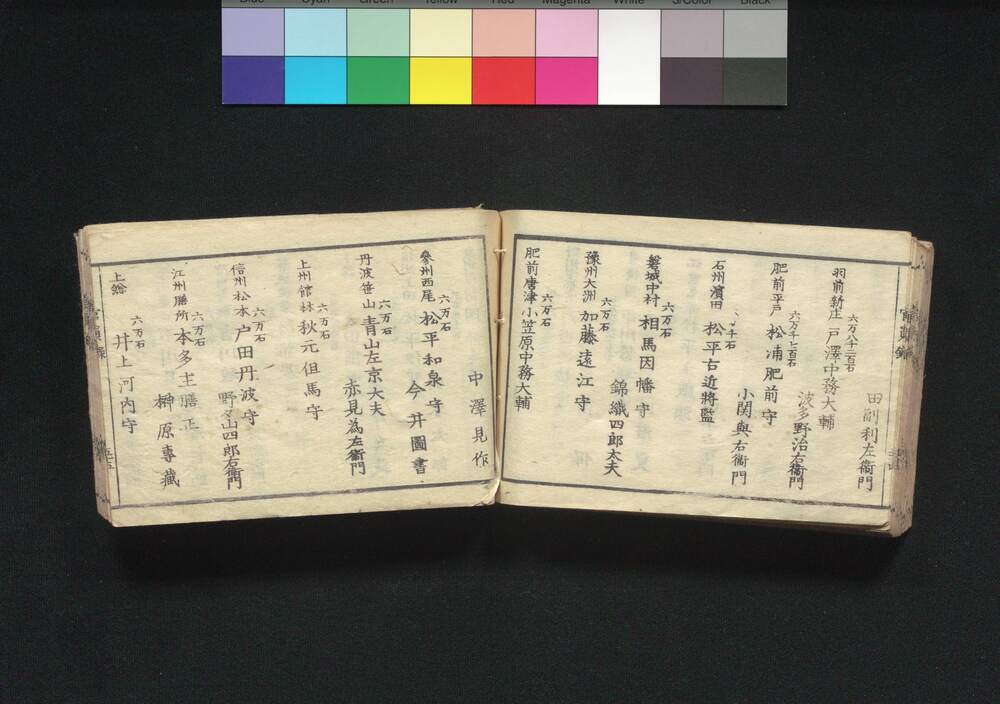 Blue Cyan Green Yellow Red Magenta White 3/Color Black
田副利左衞門
羽前新庄 六万八千二百石 戸澤中務大輔
波多野治右衞門
肥前平戸 六万千七百石 松浦肥前守
小関與右衞門
石州濱田 千石 松平右近將監
磐城中村 六万石 相馬因幡守
錦織四郎太夫
豫州大洲 六万石 加藤遠江守
肥前唐津 六万石 小笠原中務大輔
中澤見作
參州西尾 六万石 松平和泉守
今井圖書
丹波笹山 六万石 青山左京大夫
赤見為左衞門
上州館林 六万石 秋元但馬守
信州松本 六万石 戸田丹波守
野々山四郎右衞門
江州膳所 六万石 本多主膳正
榊原專藏
上総 六万石 井上河内守